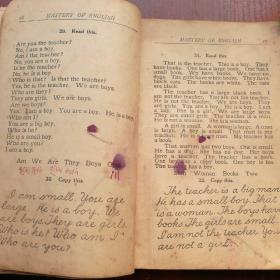 66 MASTERY OF ENGLISH
29. Read this.
Are you the teacher?
No, I am a boy.
Am I the teacher?
No, you are a boy.
Is he the teacher?
No, he is a boy.
Who is that? Is that the teacher?
Yes, he is the teacher. We are boys.
Who are they?
They are girls. We are boys.
Are we boys?
I am a boy You are a boy. He is a boy
Who am I?
You are a boy.
Who is he?
He is a small boy.
Who are you?
I am a boy.
Am We Are They Boys
30 Copy this.
I am small. You are
large. He is a boy. We
are boys. They are girls.
Who is he? Who am I
Who are you?
MASTERY OF ENGLISH
31. Read this.
That is the teacher. This is a boy. They
have books. One has a large book. One has a
small book. We have books. We have no
dogs. The girls have white books. The boys
have black books.
The cats are white. The dogs are not red.
One is large. One is small. You are not large.
He is the teacher. We are boys. They are
girls. You are a boy, and he is a boy. I am
a boy. She is a girl. She is not a boy. Are
you a boy? Are they girls? No, they are not
girls. They are women. I am not a man.
A girl is small. A woman is large. A boy
is small. A man is large. That is the
teacher. He is a big man. He has a small
book.
That woman has two boys. One is small.
One is large. They have books. The large boy
has a large book. The small boy has a small
book. One has a black book. One has a red
book.
Woman Books Two
32. Copy this.
The teacher is a big man.
He has a small book. That
is a woman. The boys have
books. The girls are small.
I am not the teacher. You
are not a girl.